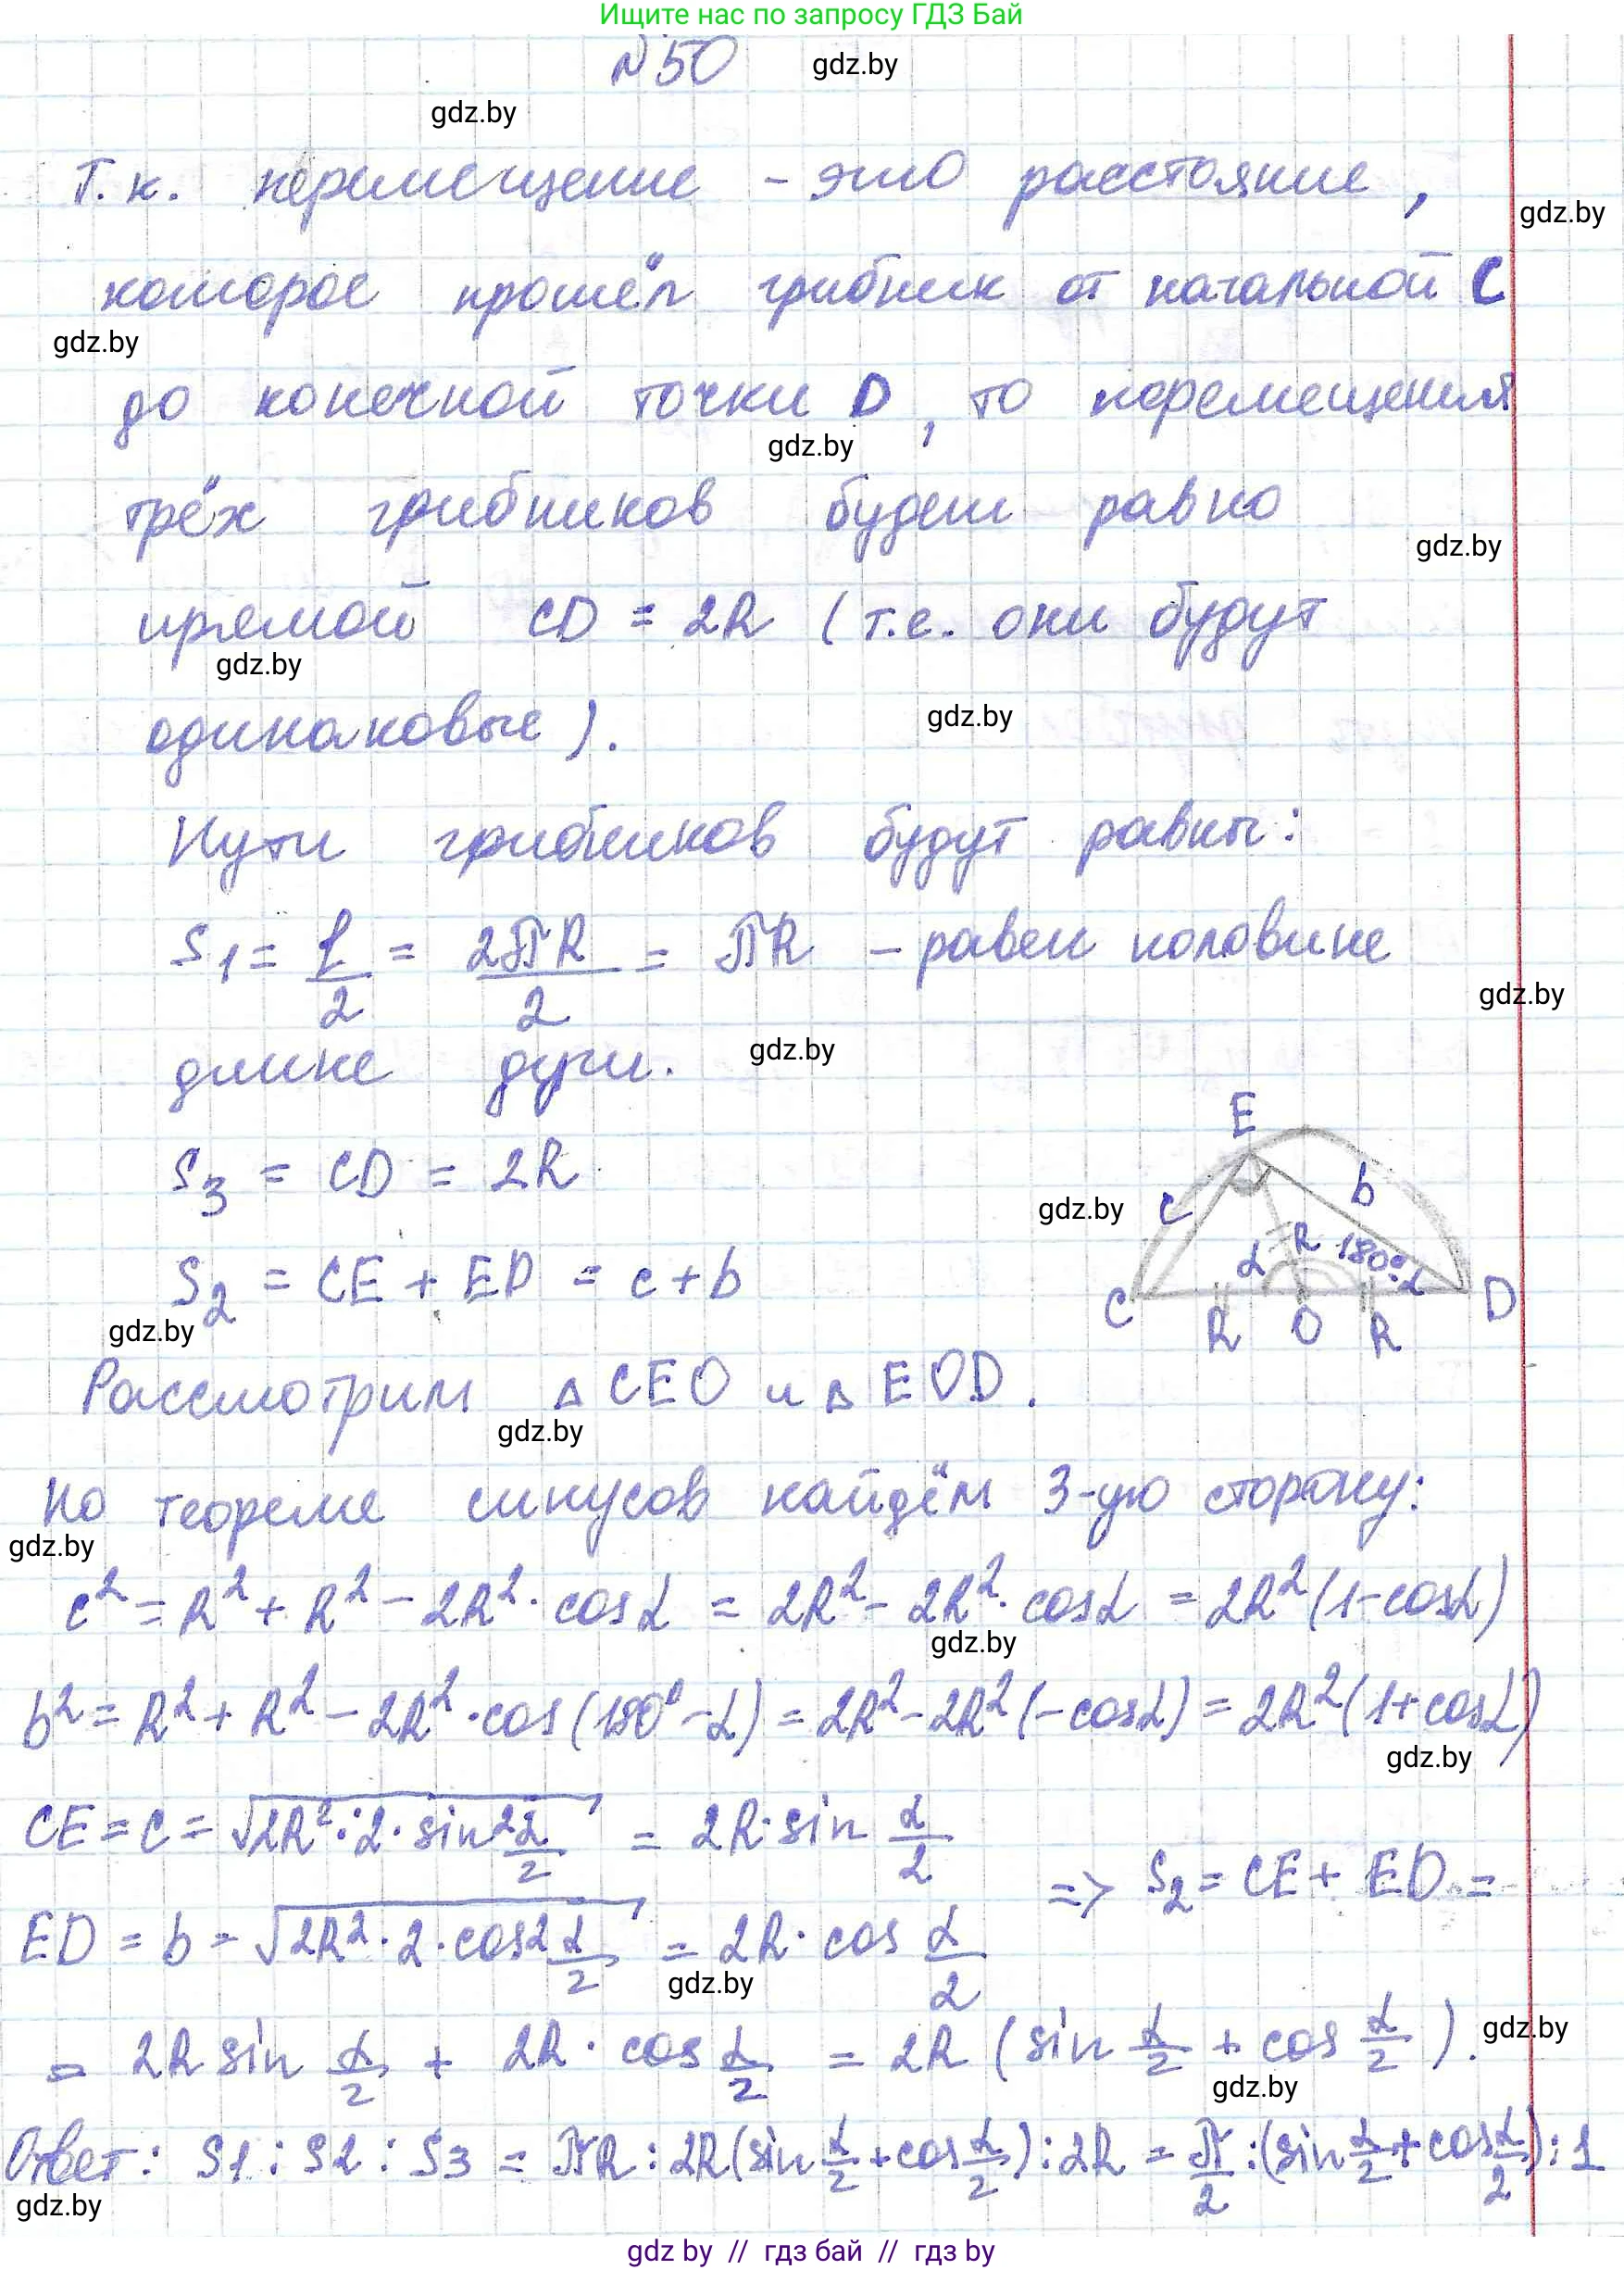 Ищите нас по запросу ГДЗ Бай
№50
gdz.by
gdz.by
Т.к. перемещение - это расстояние,
gdz.by
которое прошёл грибник от начальной C
gdz.by
до конечной точки D, то перемещения
gdz.by
трёх грибников будет равно
gdz.by
прямой CD = 2R (т.е. они будут
gdz.by
одинаковые).
gdz.by
Пути грибников будут равны:
S1 = l/2 = 2πR/2 = πR - равен половине
gdz.by
длине дуги.
gdz.by
E
S3 = CD = 2R
c
b
gdz.by
R
α
180°-α
S2 = CE + ED = c + b
C
R
O
R
D
gdz.by
Рассмотрим △CEO и △EOD.
gdz.by
По теореме синусов найдём 3-ую сторону:
gdz.by
c² = R² + R² - 2R² · cosα = 2R² - 2R² · cosα = 2R²(1-cosα)
gdz.by
b² = R² + R² - 2R² · cos(180°-α) = 2R² - 2R²(-cosα) = 2R²(1+cosα)
gdz.by
CE = c = √(2R² · 2 · sin² α/2) = 2R · sin α/2
=> S2 = CE + ED =
ED = b = √(2R² · 2 · cos² α/2) = 2R · cos α/2
gdz.by
= 2R sin α/2 + 2R · cos α/2 = 2R (sin α/2 + cos α/2).
gdz.by
gdz.by
Ответ: S1 : S2 : S3 = πR : 2R(sin α/2 + cos α/2) : 2R = π/2 : (sin α/2 + cos α/2) : 1
gdz.by
gdz by // гдз бай // гдз by